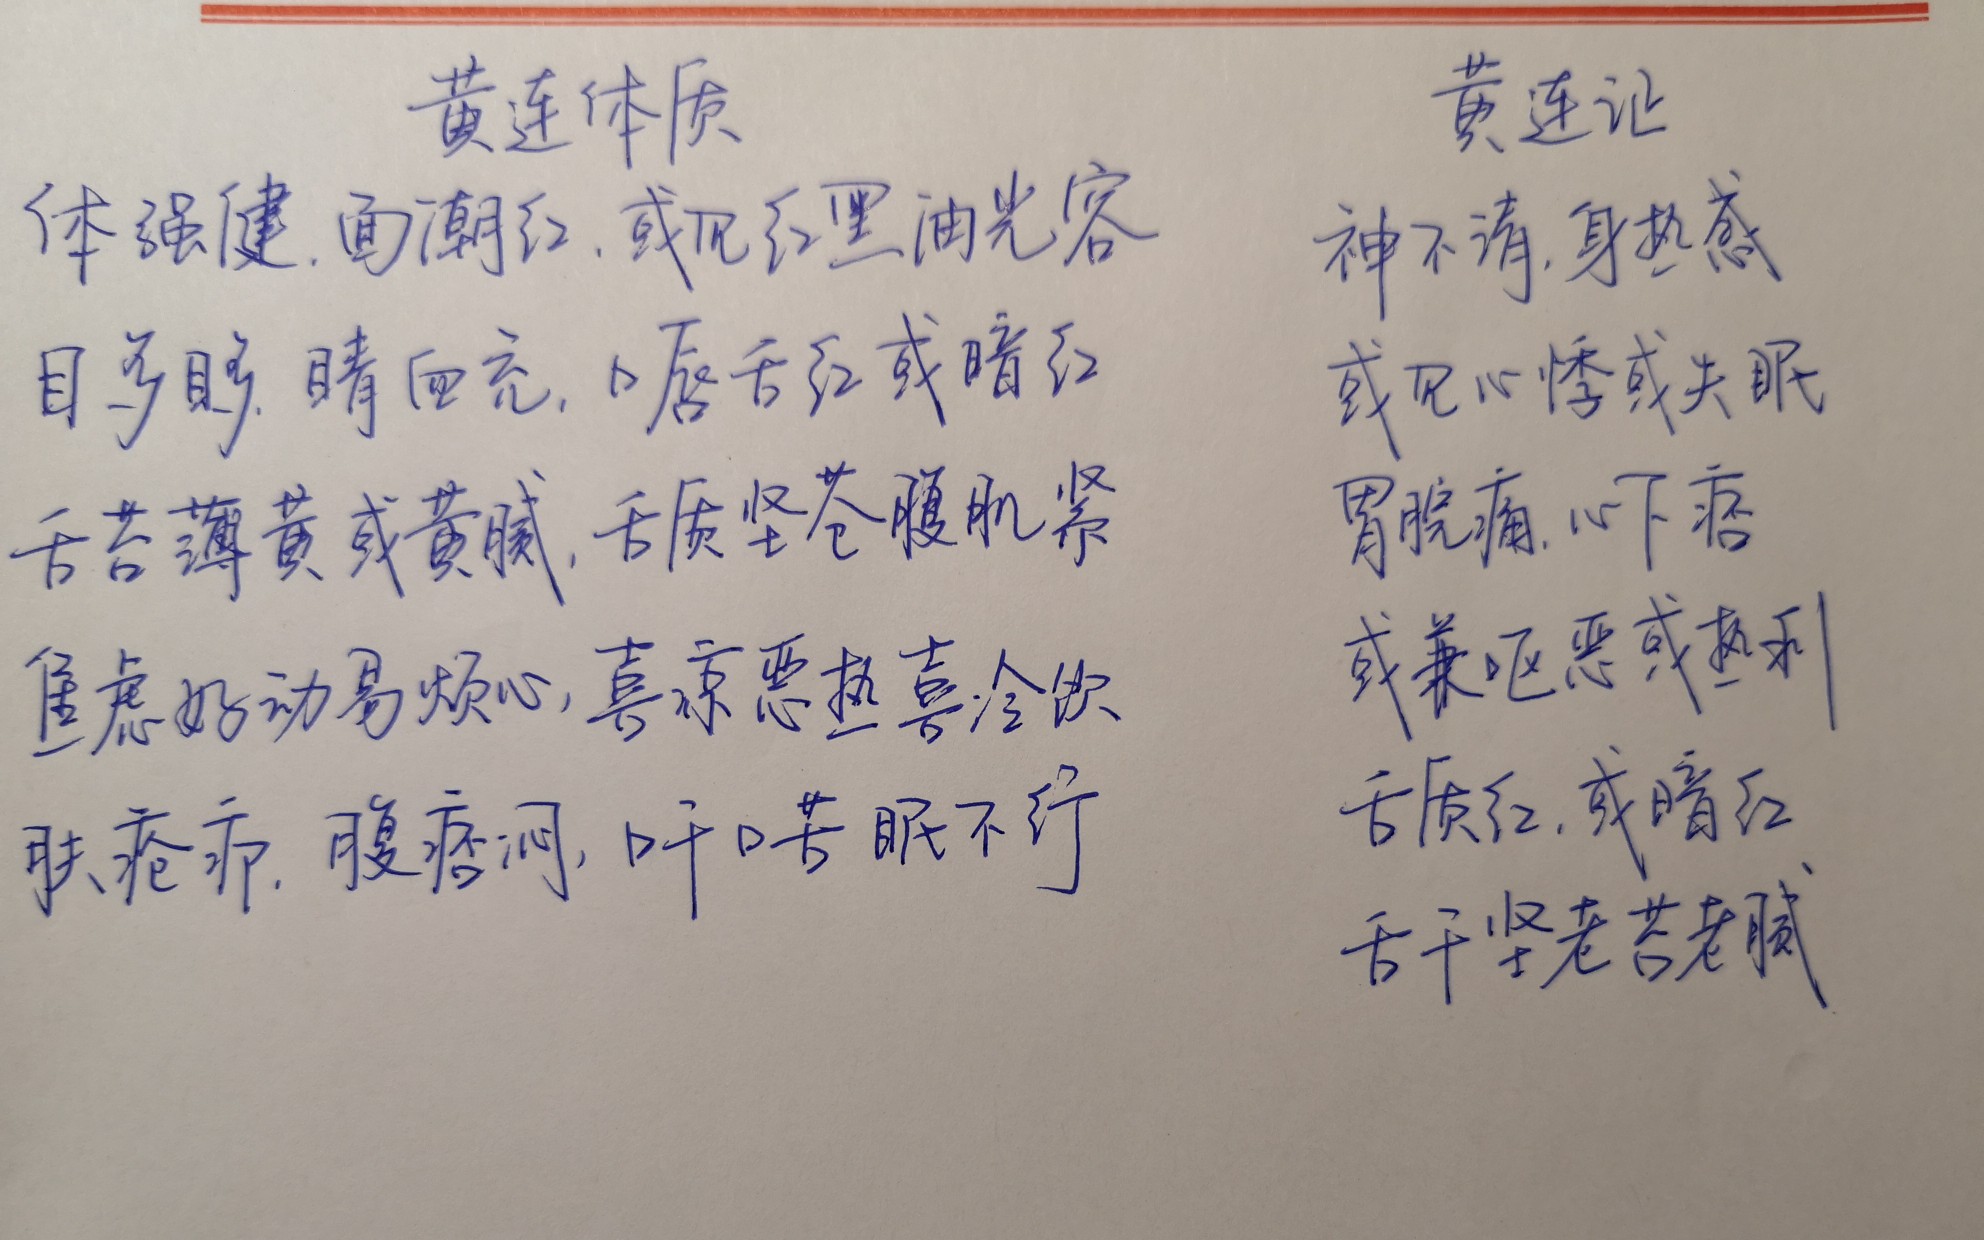 黄连体质
体强健.面潮红.或见红黑油光容
目多眵.睛血充,口唇舌红或暗红
舌苔薄黄或黄腻,舌质坚苍腹肌紧
焦虑好动易烦心,喜凉恶热喜冷饮
肤疮疖.腹痞闷,口干口苦眠不行
黄连证
神不清.身热感
或见心悸或失眠
胃脘痛.心下痞
或兼呕恶或热利
舌质红.或暗红
舌干坚老苔老腻